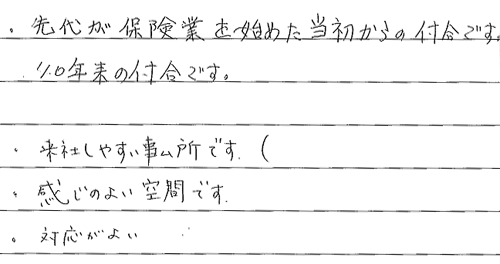 ・先代が保険業を始めた当初からの付合です。
40年来の付合です。
・来社しやすい事ム所です。(
・感じのよい空間です。
・対応がよい